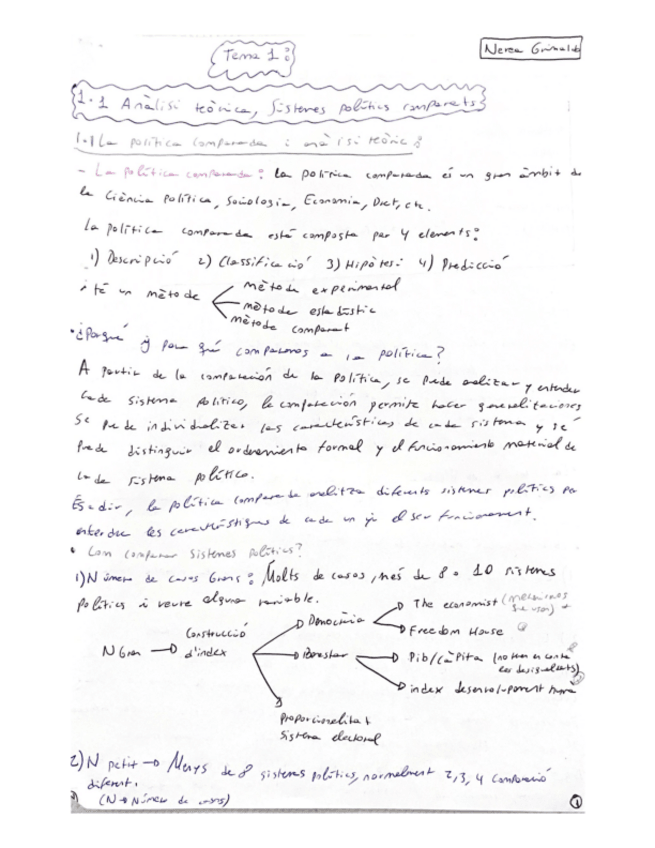 Tema 1:
Nerea Grimaldo
1.1 Anàlisi teòrica, Sistemes polítics comparats
1.1 La política comparada i anàlisi teòric:
- La política comparada: la política comparada és un gran àmbit de
la Ciència Política, Sociologia, Economia, Dret, etc.
La política comparada està composta per 4 elements:
1) Descripció 2) Classificació 3) Hipòtesi 4) Predicció
· té un mètode
mètode experimental
mètode estadístic
mètode comparat
· ¿Porqué y para qué comparamos a la política?
A partir de la comparación de la política, se puede analizar y entender
cada sistema político, la comparación permite hacer generalizaciones
Se puede individualizar las características de cada sistema y se
puede distinguir el ordenamiento formal y el funcionamiento material de
cada sistema político.
És a dir, la política comparada analitza diferents sistemes polítics per
entendre les característiques de cada un i el seu funcionament.
· Com comparar sistemes polítics?
1) Número de casos Grans: Molts de casos, més de 8 o 10 sistemes
polítics i veure alguna variable.
N Gran → Construcció d'index
Democràcia
The economist
Freedom House
Benestar
Pib/càpita (no tien en conte les desigualtats)
index desenvolupament humà
Proporcionalitat
sistema electoral
2) N petit → Menys de 8 sistemes polítics, normalment 2, 3, 4 comparació
diferent.
(N → Número de casos)
1